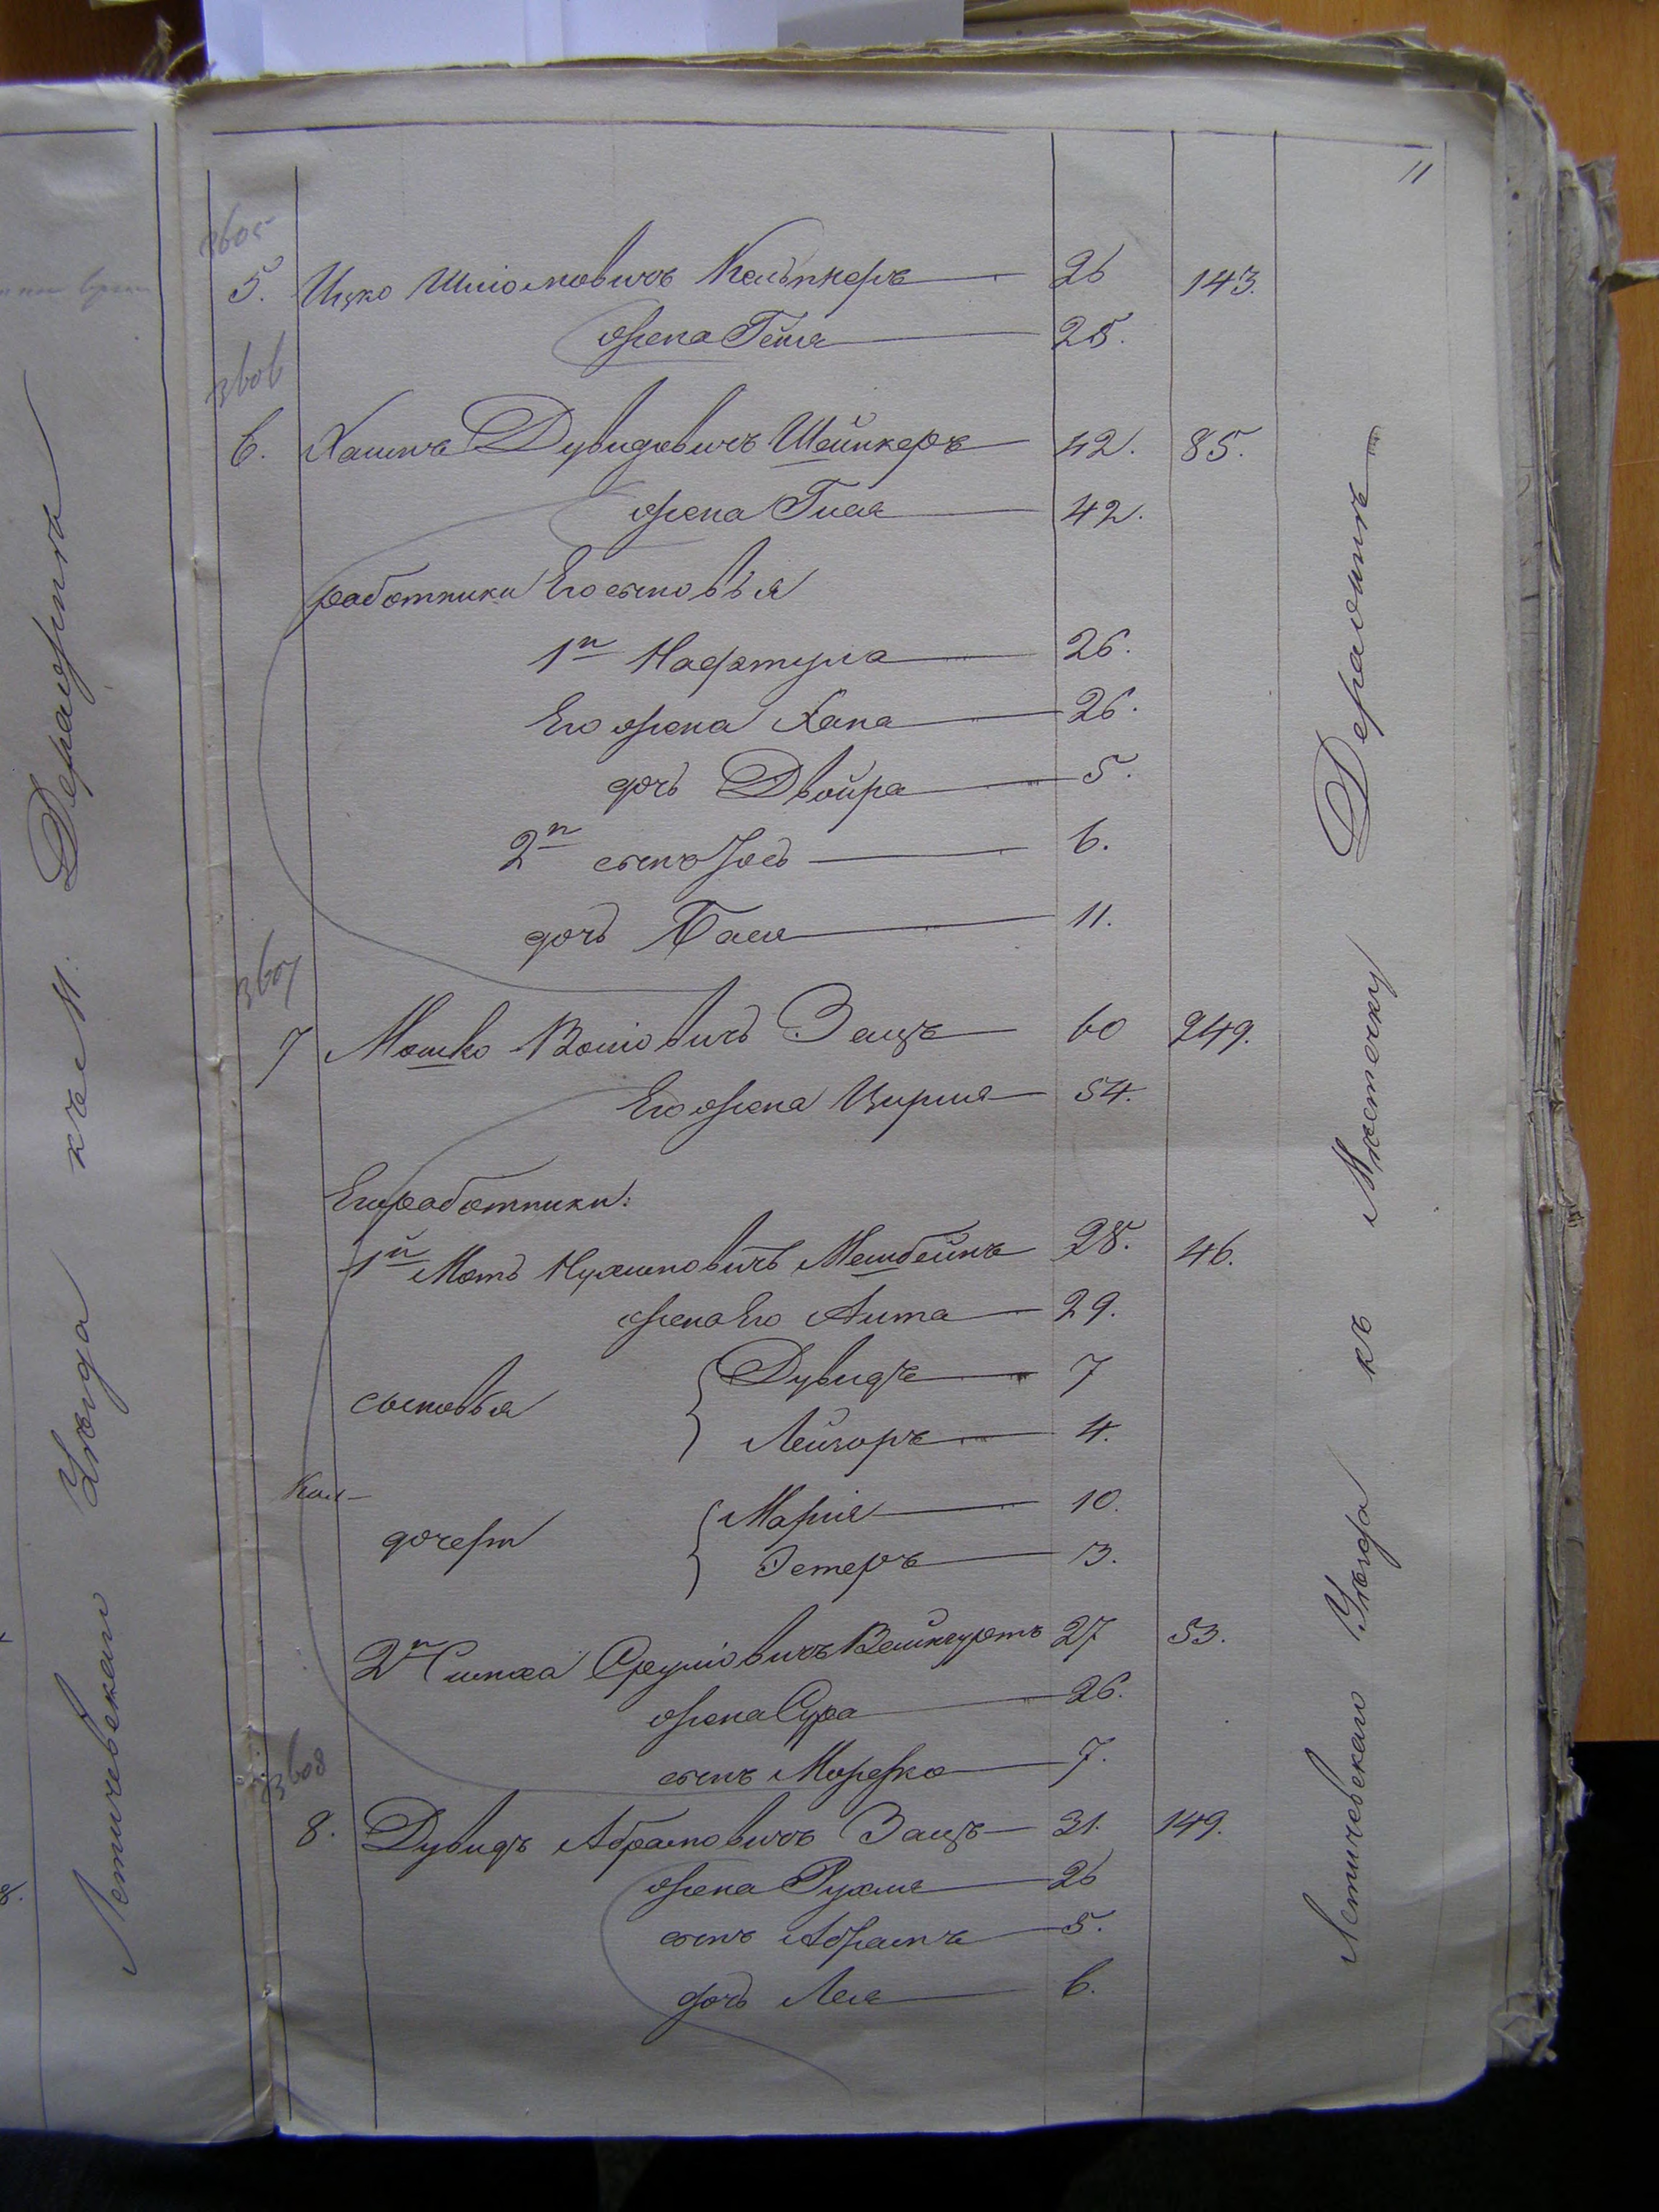 11
3605
5. Ицко Шліомовичъ Кельнкеръ 26 143.
жена Гейля 25.
3606
6. Хаимъ Дувидовичъ Шейнкеръ 42. 85.
жена Гися 42.
работники Его сыновья
1й Нафтула 26.
Его жена Хана 26.
дочь Двойра 5.
2й сынъ Іось 6.
дочь Бася 11.
3607
7 Мошко Волиовичъ Зацъ 60 249.
Его жена Цирля 54.
Его работники:
1й Моть Нухимовичъ Мешбейнъ 28. 46.
жена Его Лита 29.
сыновья Дувидъ 7
Лейзоръ 4.
Кол-
дочери Марія 10.
Эстеръ 3.
2й Симха Сруліовичъ Вейнгуртъ 27 53.
жена Сура 26.
сынъ Мордко 7.
3608
8. Дувидъ Абрамовичъ Зацъ 31. 149.
жена Рухля 26
сынъ Абрамъ 5.
дочь Лея 6.
Летичевскаго Уѣзда къ Мѣстечку Деражнѣ
Летичевскаго Уѣзда къ М. Деражнѣ